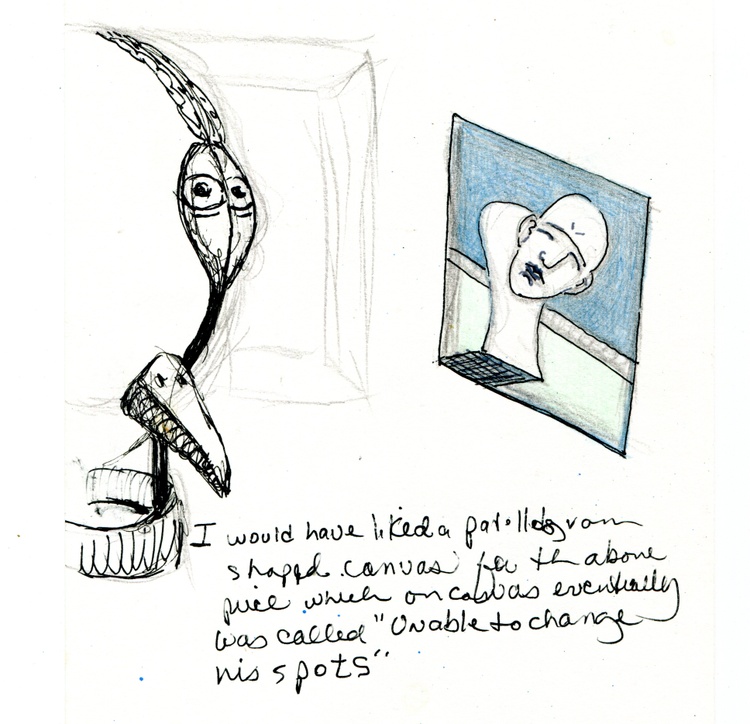 I would have liked a parallelogram
shapped canvas for the above
piece which on canvas eventually
was called "Unable to change
his spots"